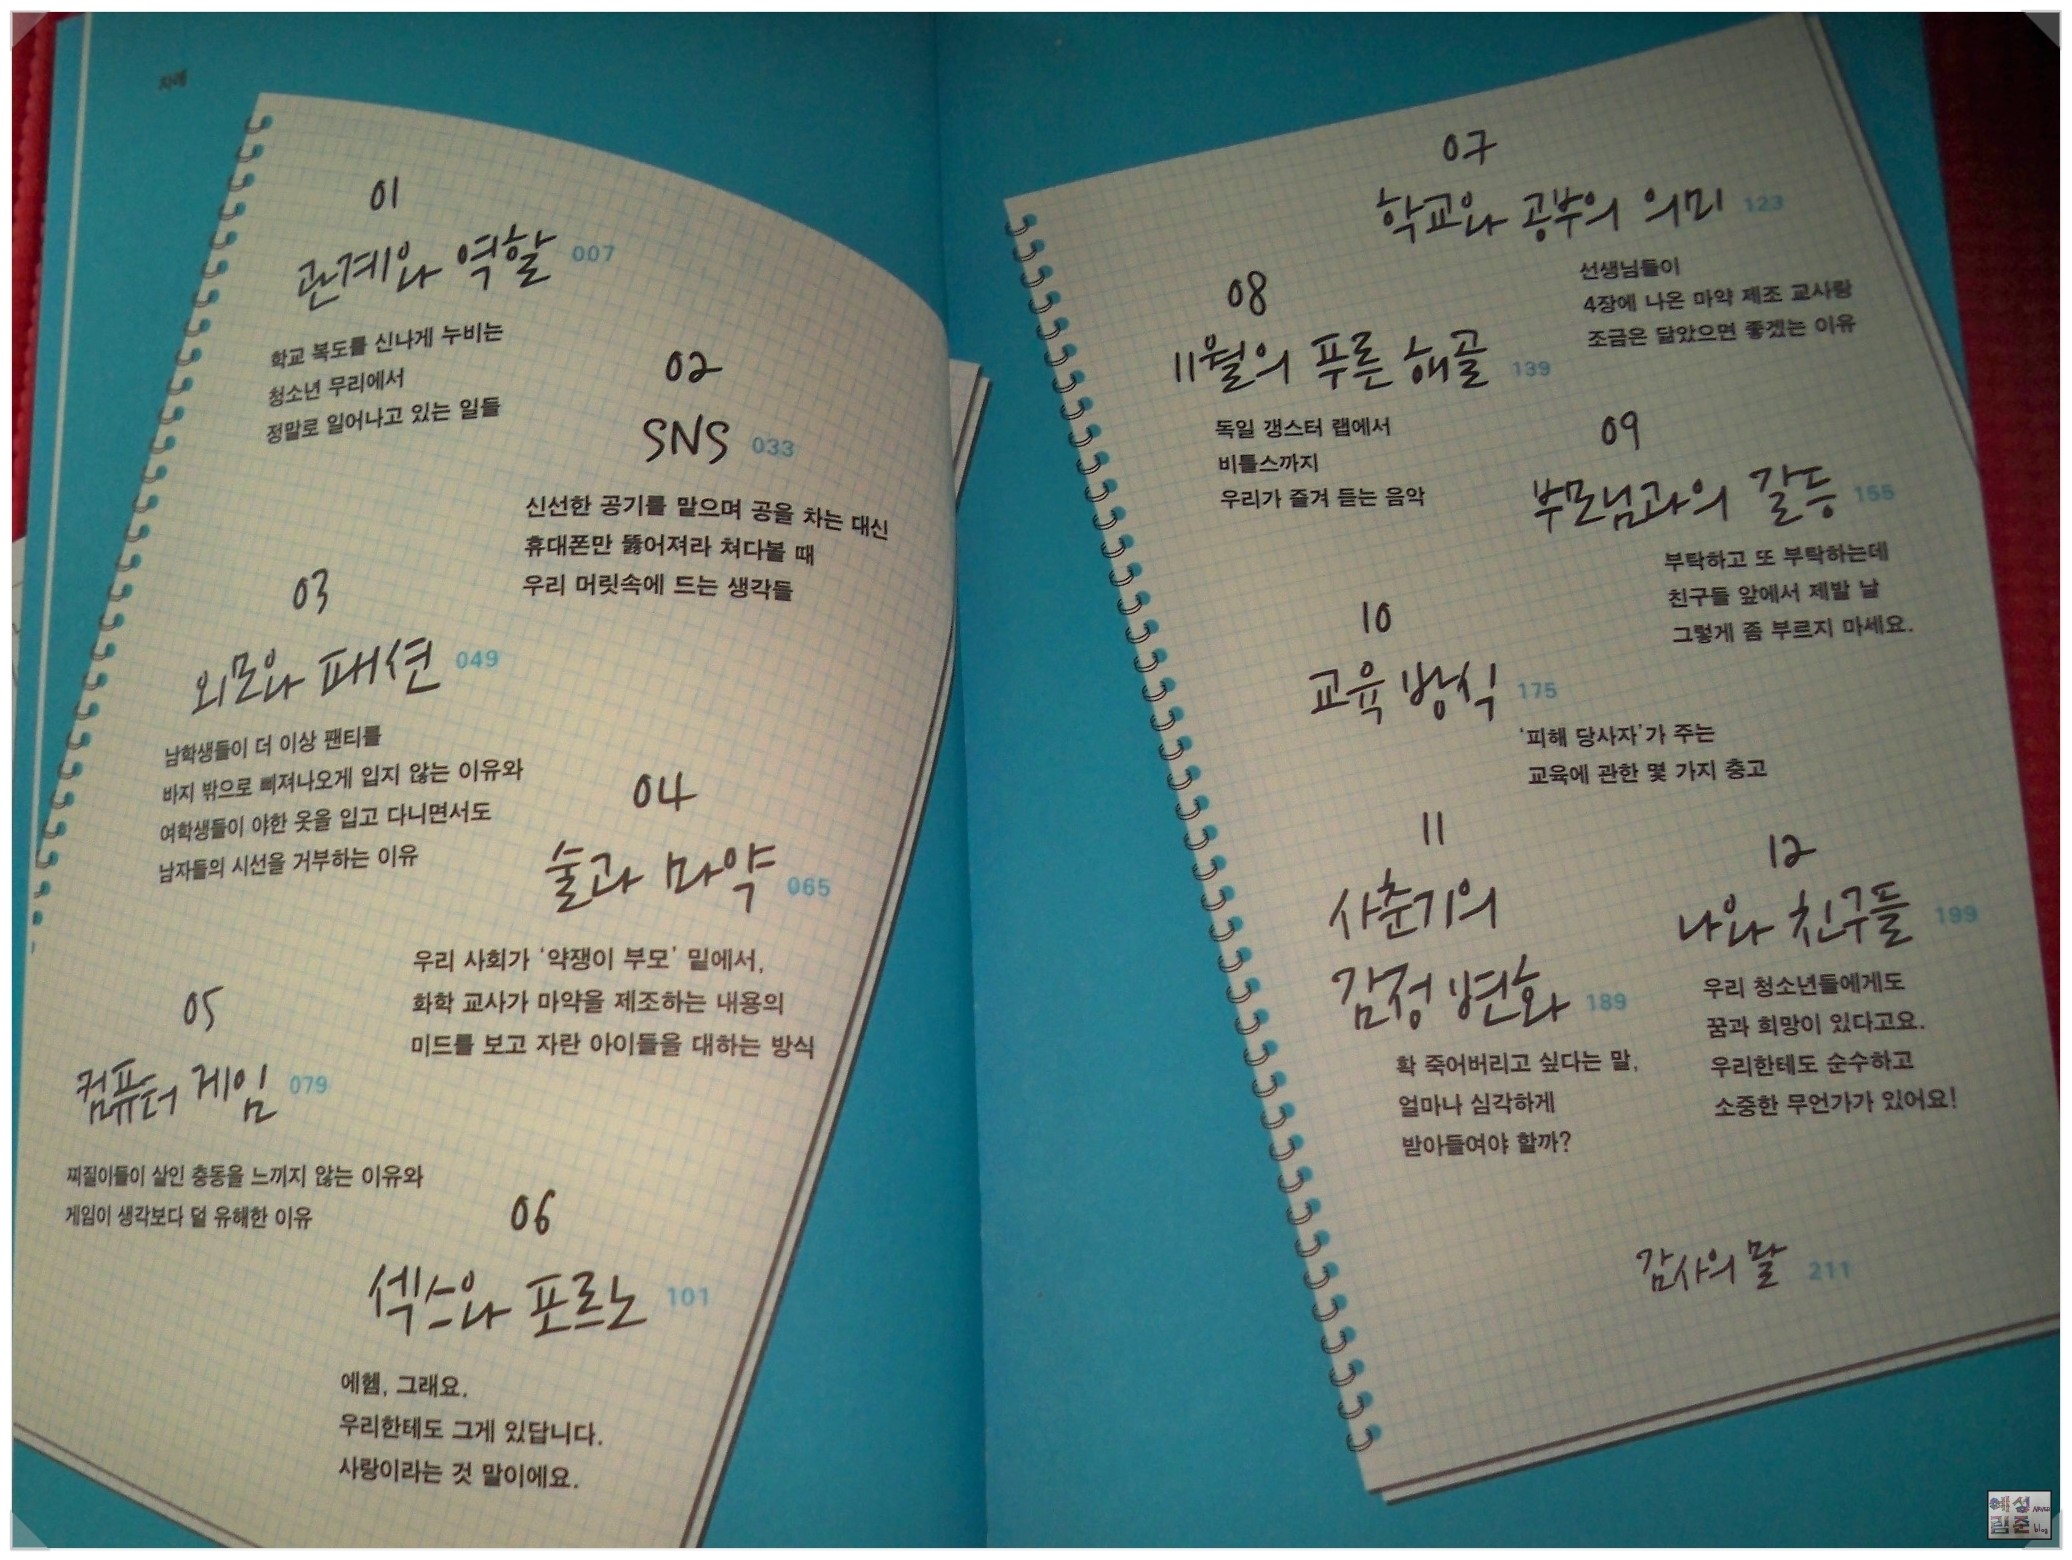 차례
01
관계와 역할 007
학교 복도를 신나게 누비는
청소년 무리에서
정말로 일어나고 있는 일들
02
SNS 033
신선한 공기를 맡으며 공을 차는 대신
휴대폰만 뚫어져라 쳐다볼 때
우리 머릿속에 드는 생각들
03
외모와 패션 049
남학생들이 더 이상 팬티를
바지 밖으로 삐져나오게 입지 않는 이유와
여학생들이 야한 옷을 입고 다니면서도
남자들의 시선을 거부하는 이유
04
술과 마약 065
우리 사회가 '약쟁이 부모' 밑에서,
화학 교사가 마약을 제조하는 내용의
미드를 보고 자란 아이들을 대하는 방식
05
컴퓨터 게임 079
찌질이들이 살인 충동을 느끼지 않는 이유와
게임이 생각보다 덜 유해한 이유
06
섹스와 포르노 101
에헴, 그래요.
우리한테도 그게 있답니다.
사랑이라는 것 말이에요.
07
학교와 공부의 의미 123
선생님들이
4장에 나온 마약 제조 교사랑
조금은 닮았으면 좋겠는 이유
08
11월의 푸른 해골 139
독일 갱스터 랩에서
비틀스까지
우리가 즐겨 듣는 음악
09
부모님과의 갈등 155
부탁하고 또 부탁하는데
친구들 앞에서 제발 날
그렇게 좀 부르지 마세요.
10
교육 방식 175
'피해 당사자'가 주는
교육에 관한 몇 가지 충고
11
사춘기의
감정 변화 189
확 죽어버리고 싶다는 말,
얼마나 심각하게
받아들여야 할까?
12
나와 친구들 199
우리 청소년들에게도
꿈과 희망이 있다고요.
우리한테도 순수하고
소중한 무언가가 있어요!
감사의 말 211
blog